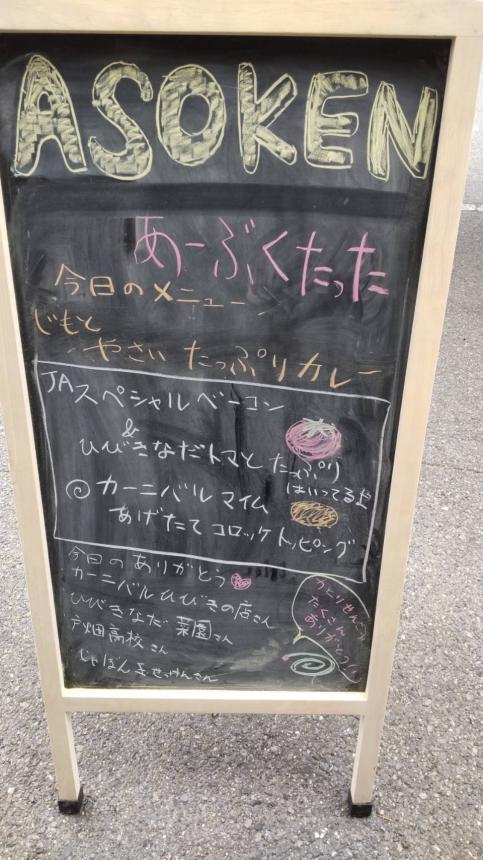 ASOKEN
あーぶくたった
今日のメニュー
じもと
やさい たっぷりカレー
JAスペシャルベーコン
&
ひびきなだトマと たっぷり
はいってるよ
カーニバル マイム
あげたて コロッケトッピング
今日のありがとう
カーニバルひびきの店さん
ひびきなだ 菜園さん
戸畑高校さん
しゃぼん玉せっけんさん
かとりせんこう
たくさん
ありがとう!